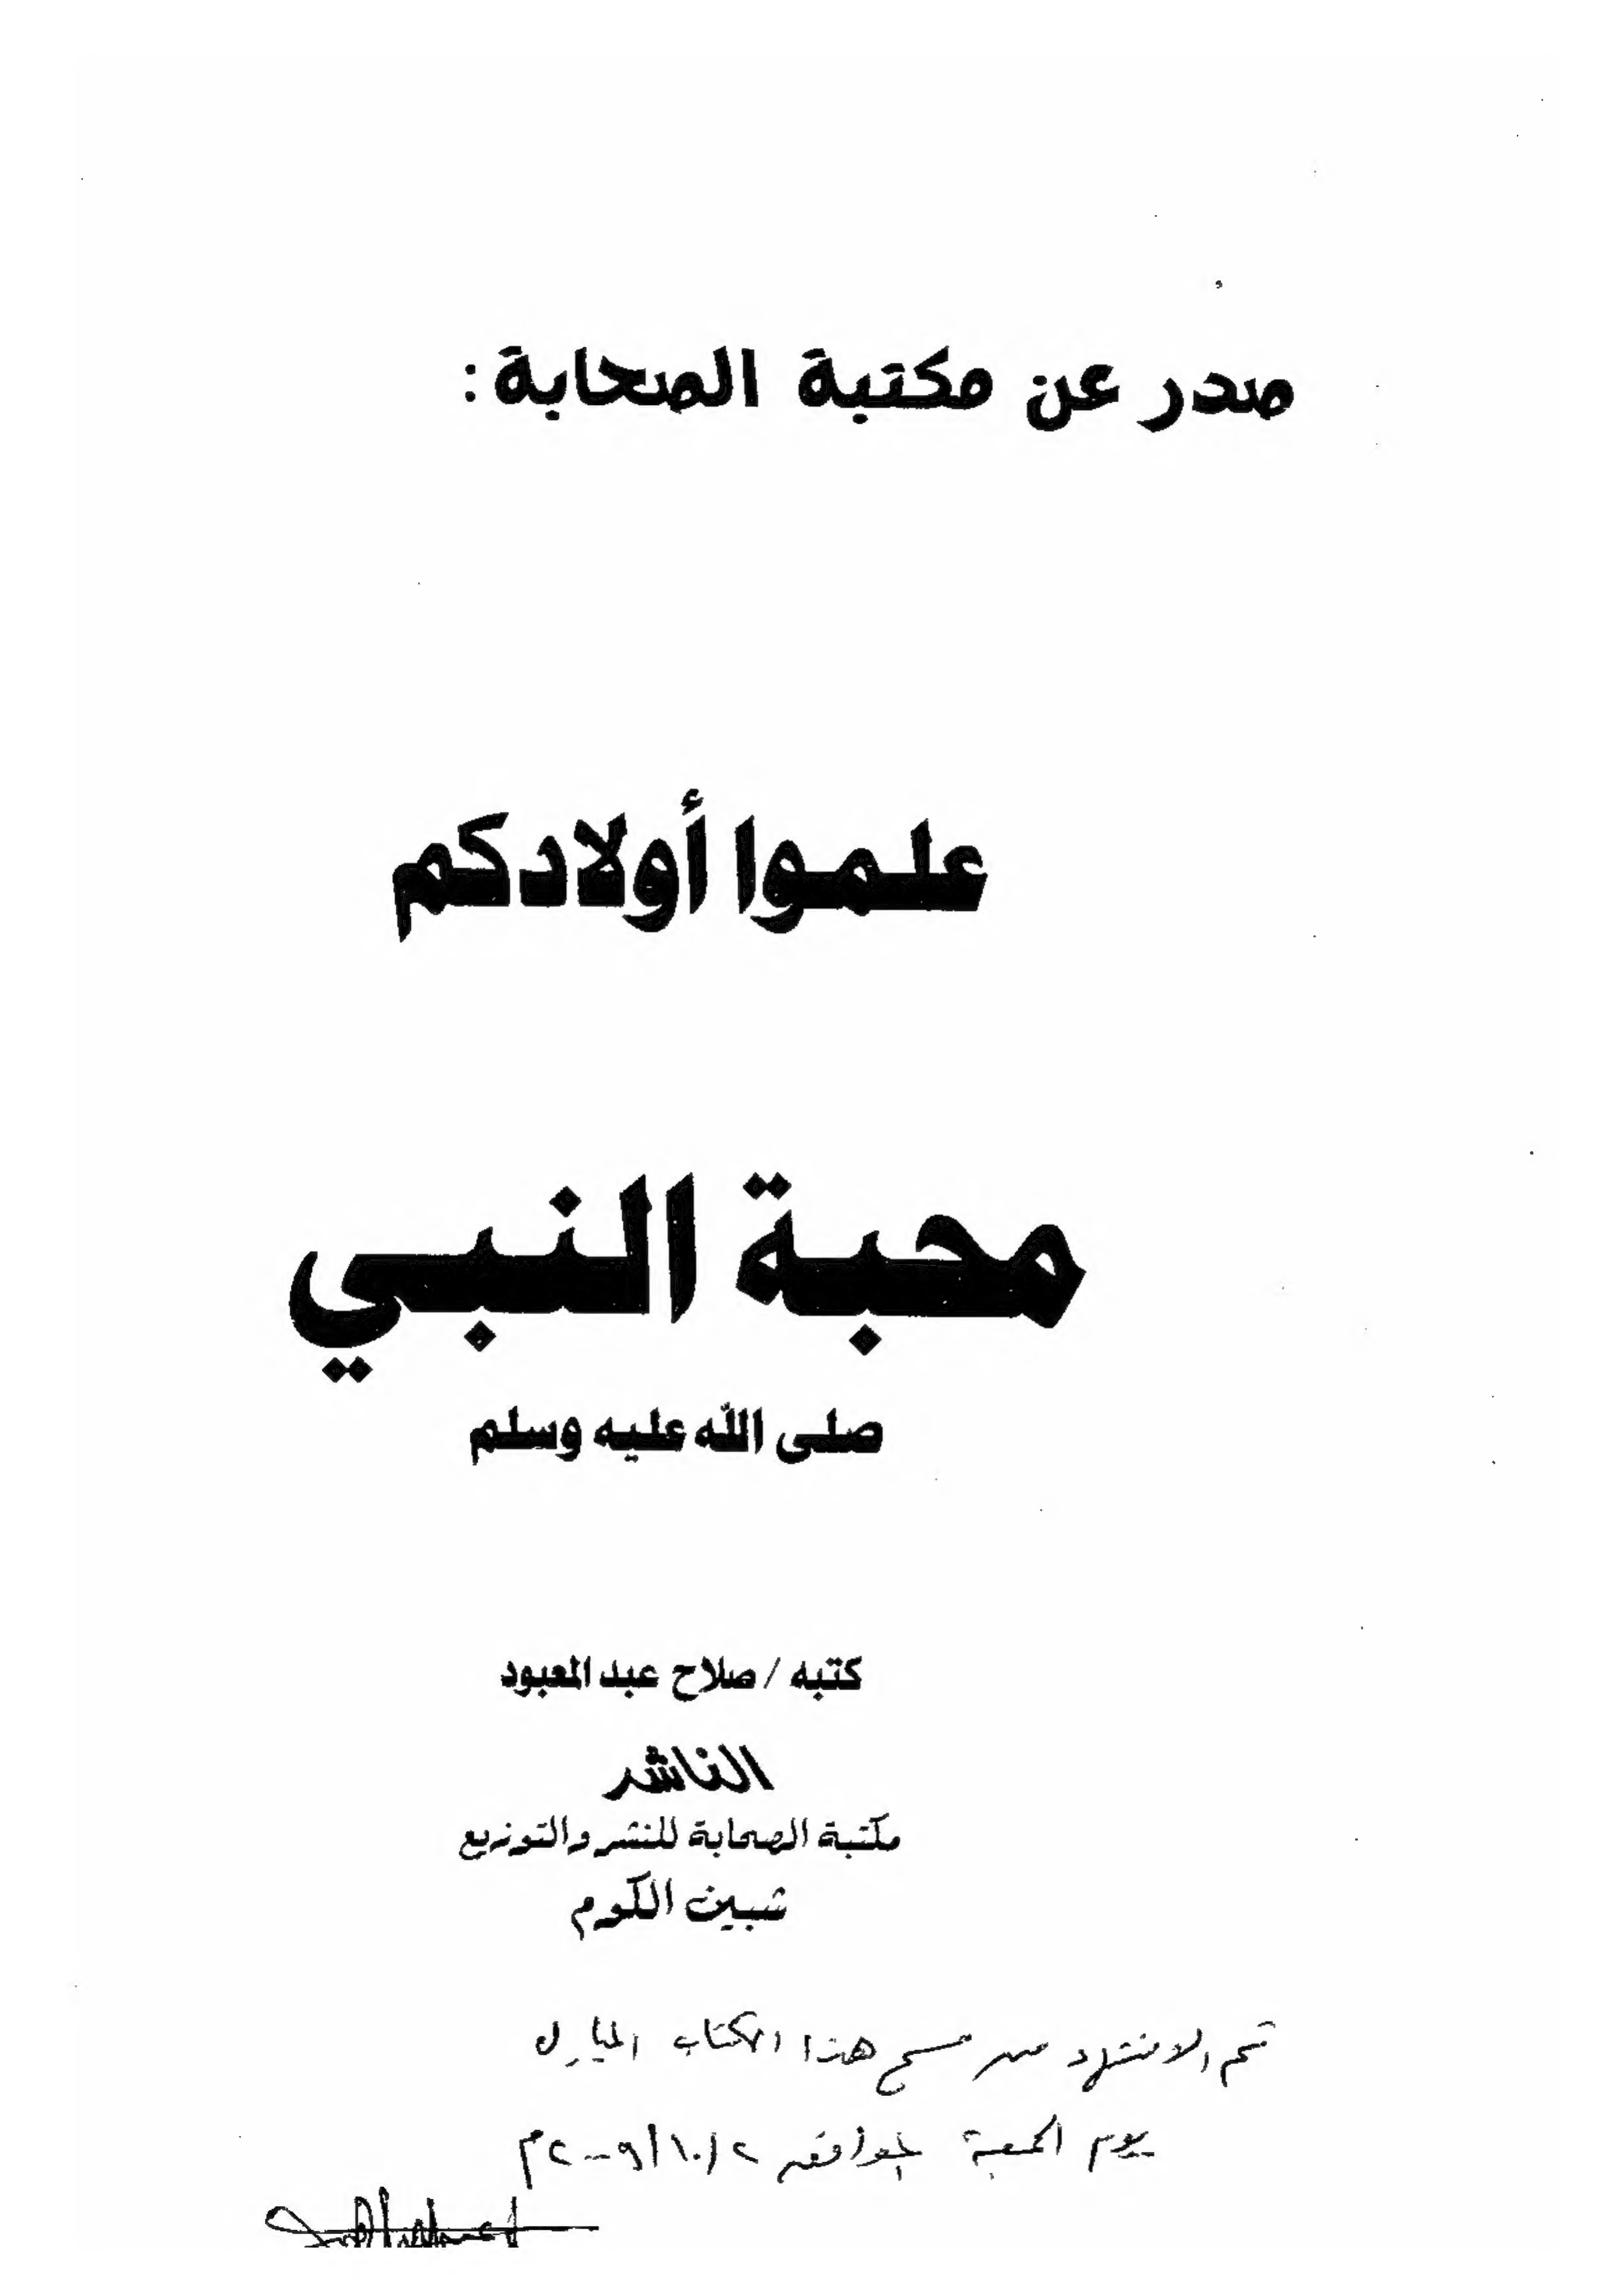 صدر عن مكتبة الصحابة:
علموا أولادكم
محبة النبي
صلى الله عليه وسلم
كتبه / صلاح عبد المعبود
الناشر
مكتبة الصحابة للنشر والتوزيع
شبين الكوم
تم الانتهاء من مسح هذا الكتاب المبارك
يوم الجمعة الموافق ٢/١٠/٢٠٠٩م